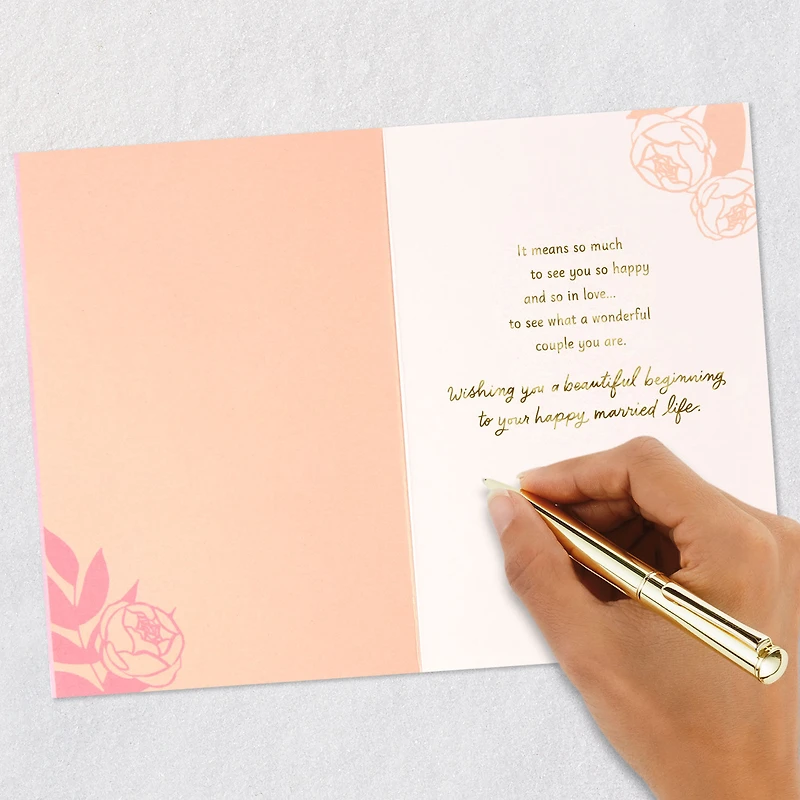 It means so much
to see you so happy
and so in love...
to see what a wonderful
couple you are.
Wishing you a beautiful beginning
to your happy married life.